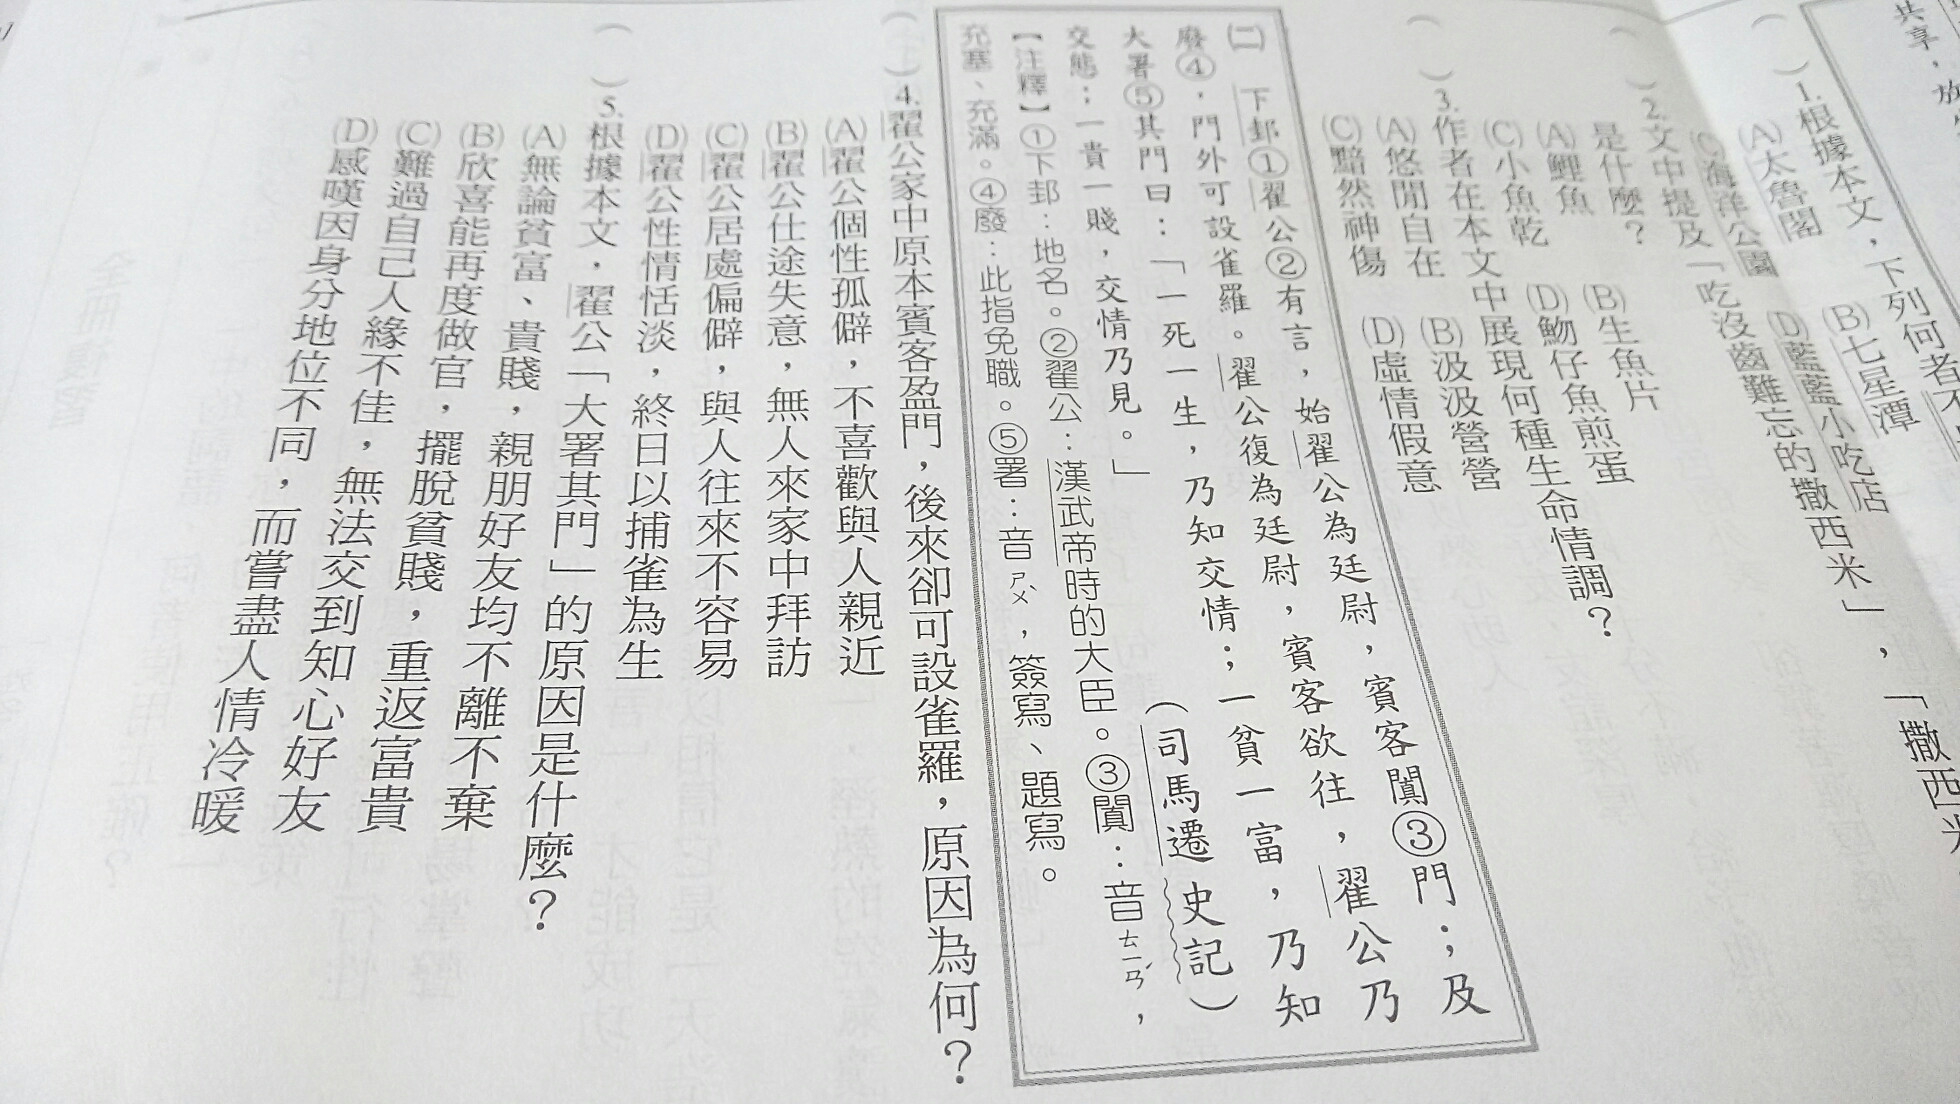 共享，放
1.根據本文，下列何者不
(A)太魯閣　(B)七星潭
(C)海洋公園　(D)藍藍小吃店
2.文中提及「吃沒齒難忘的撒西米」，「撒西米
是什麼？
(A)鯉魚　(B)生魚片
(C)小魚乾　(D)魩仔魚煎蛋
3.作者在本文中展現何種生命情調？
(A)悠閒自在　(B)汲汲營營
(C)黯然神傷　(D)虛情假意
(二)　下邽①翟公②有言，始翟公為廷尉，賓客闐③門；及
廢④，門外可設雀羅。翟公復為廷尉，賓客欲往，翟公乃
大署⑤其門曰：「一死一生，乃知交情；一貧一富，乃知
交態；一貴一賤，交情乃見。」　（司馬遷 史記）
【注釋】①下邽：地名。②翟公：漢武帝時的大臣。③闐：音ㄊㄧㄢˊ，
充塞、充滿。④廢：此指免職。⑤署：音ㄕㄨˋ，簽寫、題寫。
(　)4.翟公家中原本賓客盈門，後來卻可設雀羅，原因為何？
(A)翟公個性孤僻，不喜歡與人親近
(B)翟公仕途失意，無人來家中拜訪
(C)翟公居處偏僻，與人往來不容易
(D)翟公性情恬淡，終日以捕雀為生
(　)5.根據本文，翟公「大署其門」的原因是什麼？
(A)無論貧富、貴賤，親朋好友均不離不棄
(B)欣喜能再度做官，擺脫貧賤，重返富貴
(C)難過自己人緣不佳，無法交到知心好友
(D)感嘆因身分地位不同，而嘗盡人情冷暖